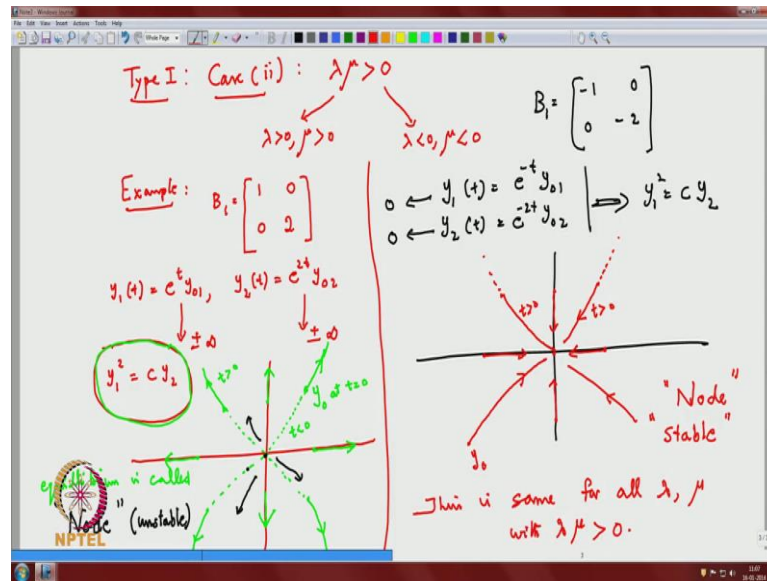 Note3 - Windows Journal
File Edit View Insert Actions Tools Help
Type I : Case (ii) : λμ > 0
λ>0, μ>0
λ<0, μ<0
Example : B₁ = [1 0
0 2]
y₁(t) = e^t y₀₁, y₂(t) = e^{2t} y₀₂
± ∞
± ∞
y₁² = c y₂
t>0
y₀ at t=0
t<0
equilibrium is called
"Node" (unstable)
NPTEL
B₁ = [-1 0
0 -2]
0 ← y₁(t) = e^{-t} y₀₁
0 ← y₂(t) = e^{-2t} y₀₂
⟹ y₁² = c y₂
t>0
t>0
y₀
"Node"
"stable"
This is same for all λ, μ
with λμ > 0.
11:07